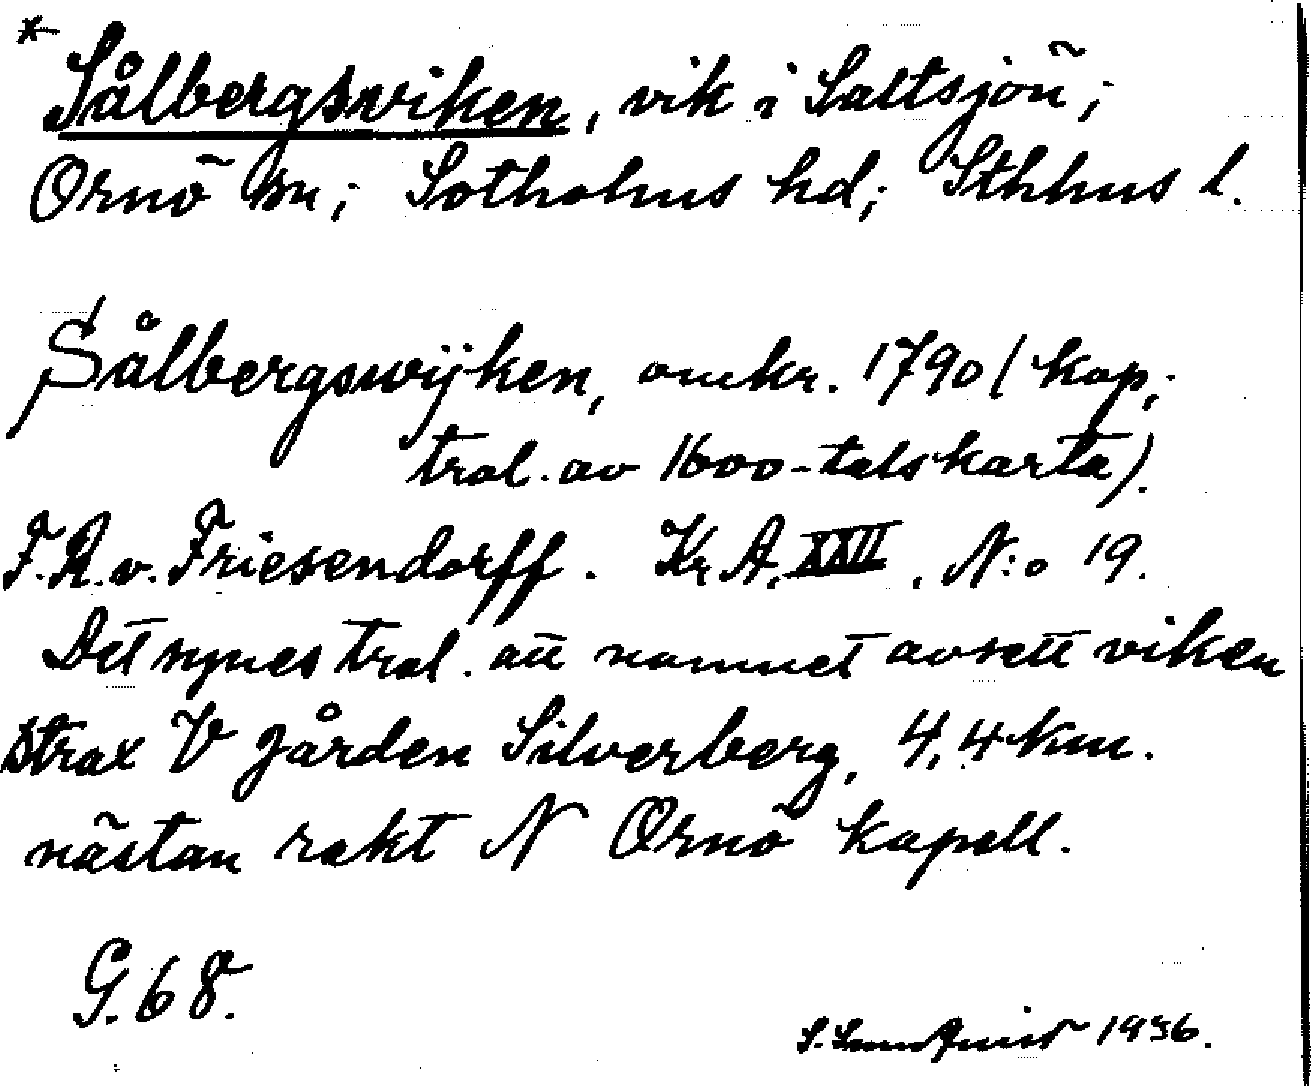 * Sålbergsviken, vik i Saltsjön;
Ornö sn; Sotholms hd; Sthlms l.
Sålbergswijken, omkr. 1790 (kop;
trol. av 1600-talskarta).
F.R.v. Friesendorff. Kr.A. XXII, N:o 19.
Det synes trol. att namnet avsett viken
strax V gården Silverberg, 4,4 km.
nästan rakt N Ornö kapell.
G. 68.
S. 1936.